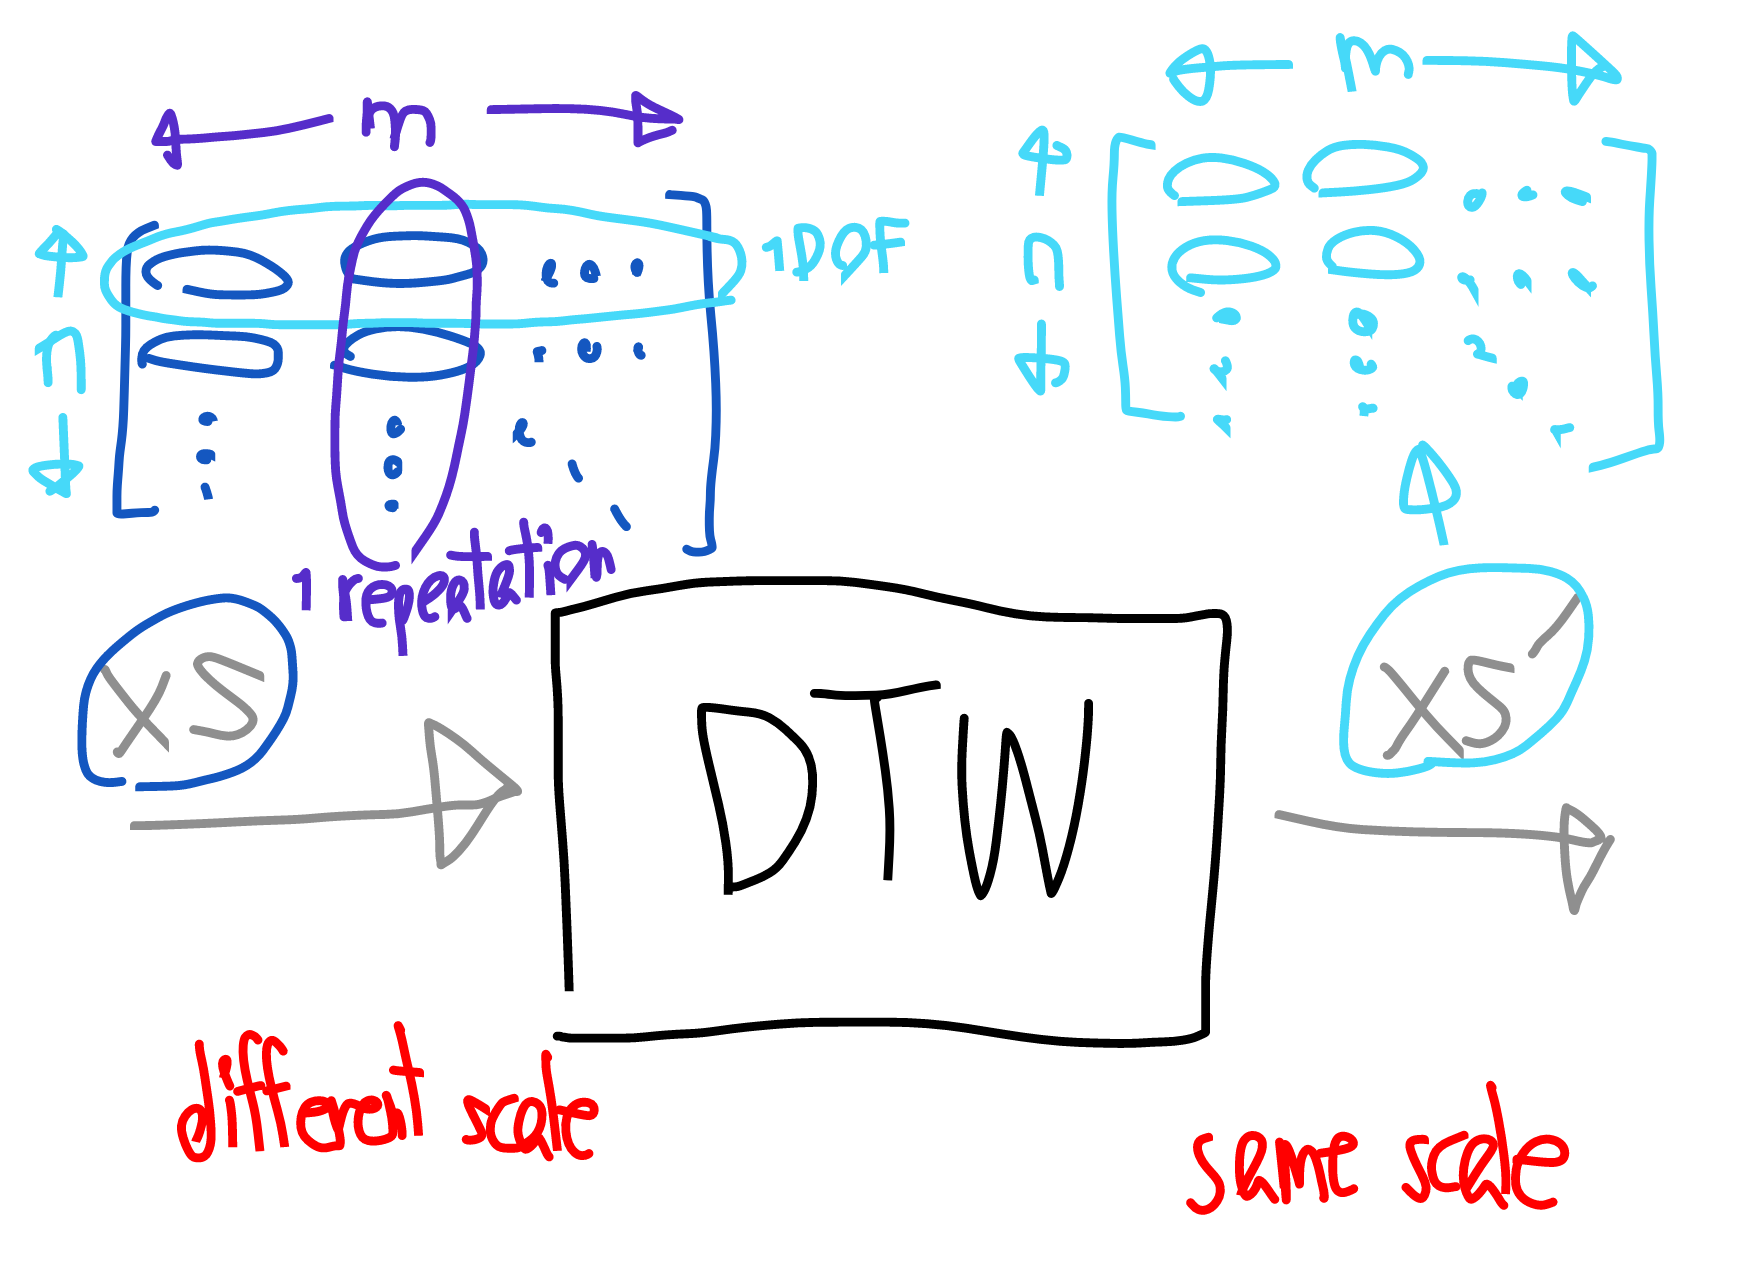 m
m
n
1DOF
n
1 repertation
XS
XS'
DTW
different scale
same scale